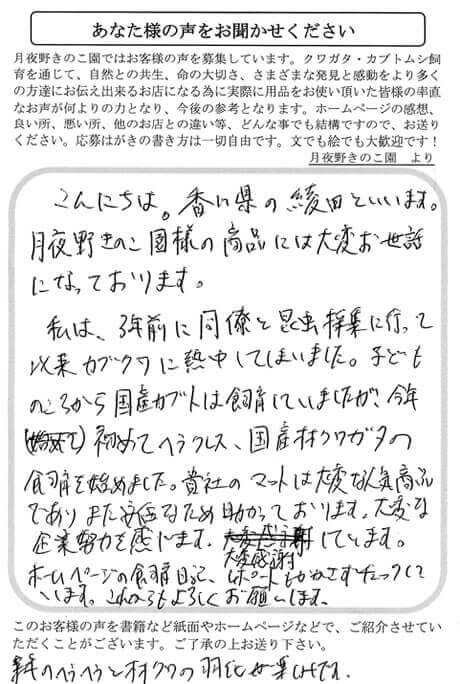 あなた様の声をお聞かせください
月夜野きのこ園ではお客様の声を募集しています。クワガタ・カブトムシ飼
育を通じて、自然との共生、命の大切さ、さまざまな発見と感動をより多く
の方達にお伝え出来るお店になる為に実際に用品をお使い頂いた皆様の率直
なお声が何よりの力となり、今後の参考となります。ホームページの感想、
良い所、悪い所、他のお店との違い等、どんな事でも結構ですので、お送り
ください。応募はがきの書き方は一切自由です。文でも絵でも大歓迎です！
月夜野きのこ園　より
こんにちは。香川県の綾田といいます。
月夜野きのこ園様の商品には大変お世話
になっております。
私は、3年前に同僚と昆虫採集に行って
以来カブクワに熱中してしまいました。子ども
のころから国産カブトは飼育していましたが、今年
初めてヘラクレス、国産材クワガタの
飼育を始めました。貴社のマットは大変な人気商品
でありまた安価なため助かっております。大変な
企業努力を感じます。大変感謝しています。
ホームページの飼育日記、レポートもかかさずチェックして
います。これからもよろしくお願いします。
このお客様の声を書籍など紙面やホームページなどで、ご紹介させてい
ただくことがございます。ご了承の上お送り下さい。
来年のヘラヘラと材クワの羽化が楽しみです。